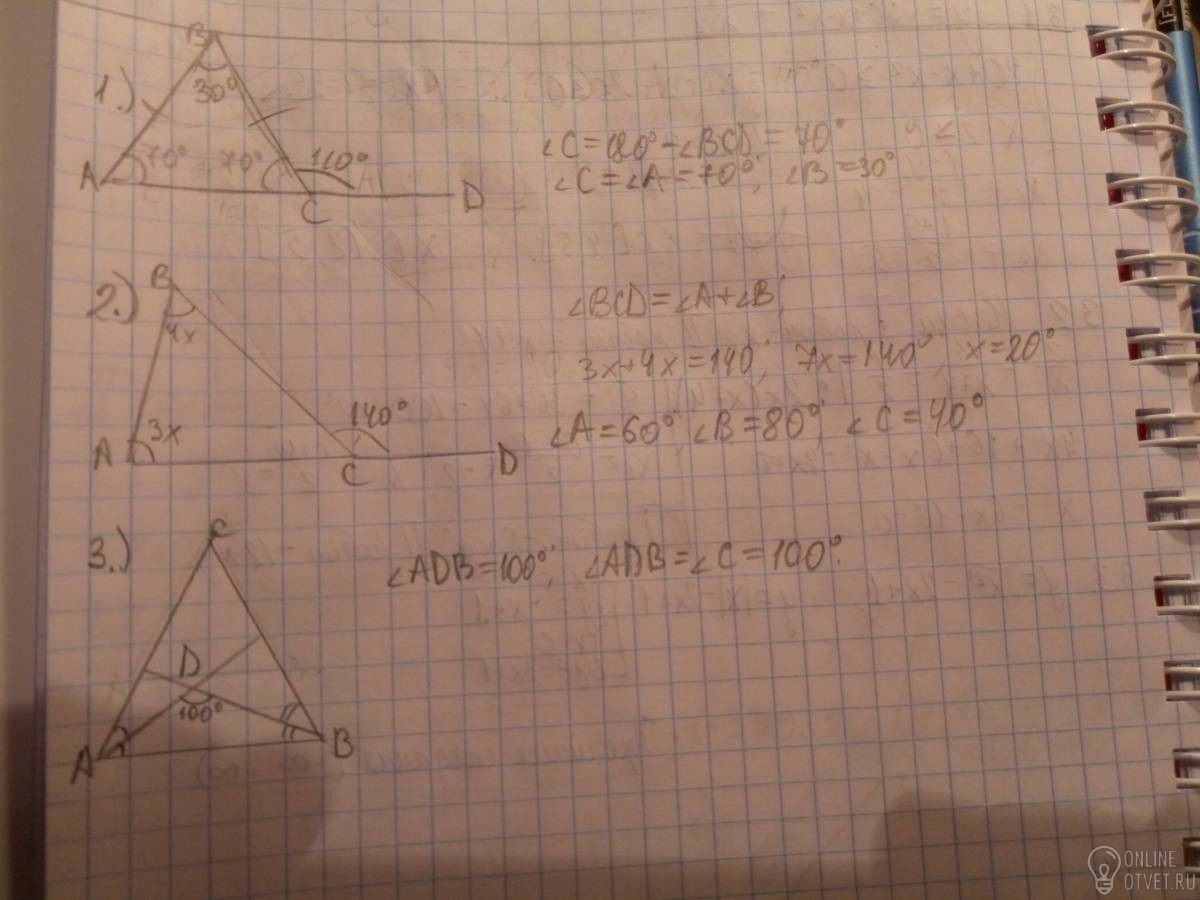 1.)
B
30°
A
70°
70°
110°
C
D
∠C = 180° - ∠BCD = 70°
∠C = ∠A = 70°; ∠B = 30°
2.)
B
4x
A
3x
140°
C
D
∠BCD = ∠A + ∠B;
3x + 4x = 140°; 7x = 140°; x = 20°
∠A = 60°; ∠B = 80°; ∠C = 40°
3.)
C
D
100°
A
B
∠ADB = 100°; ∠ADB = ∠C = 100°.
ONLINE
OTVET.RU